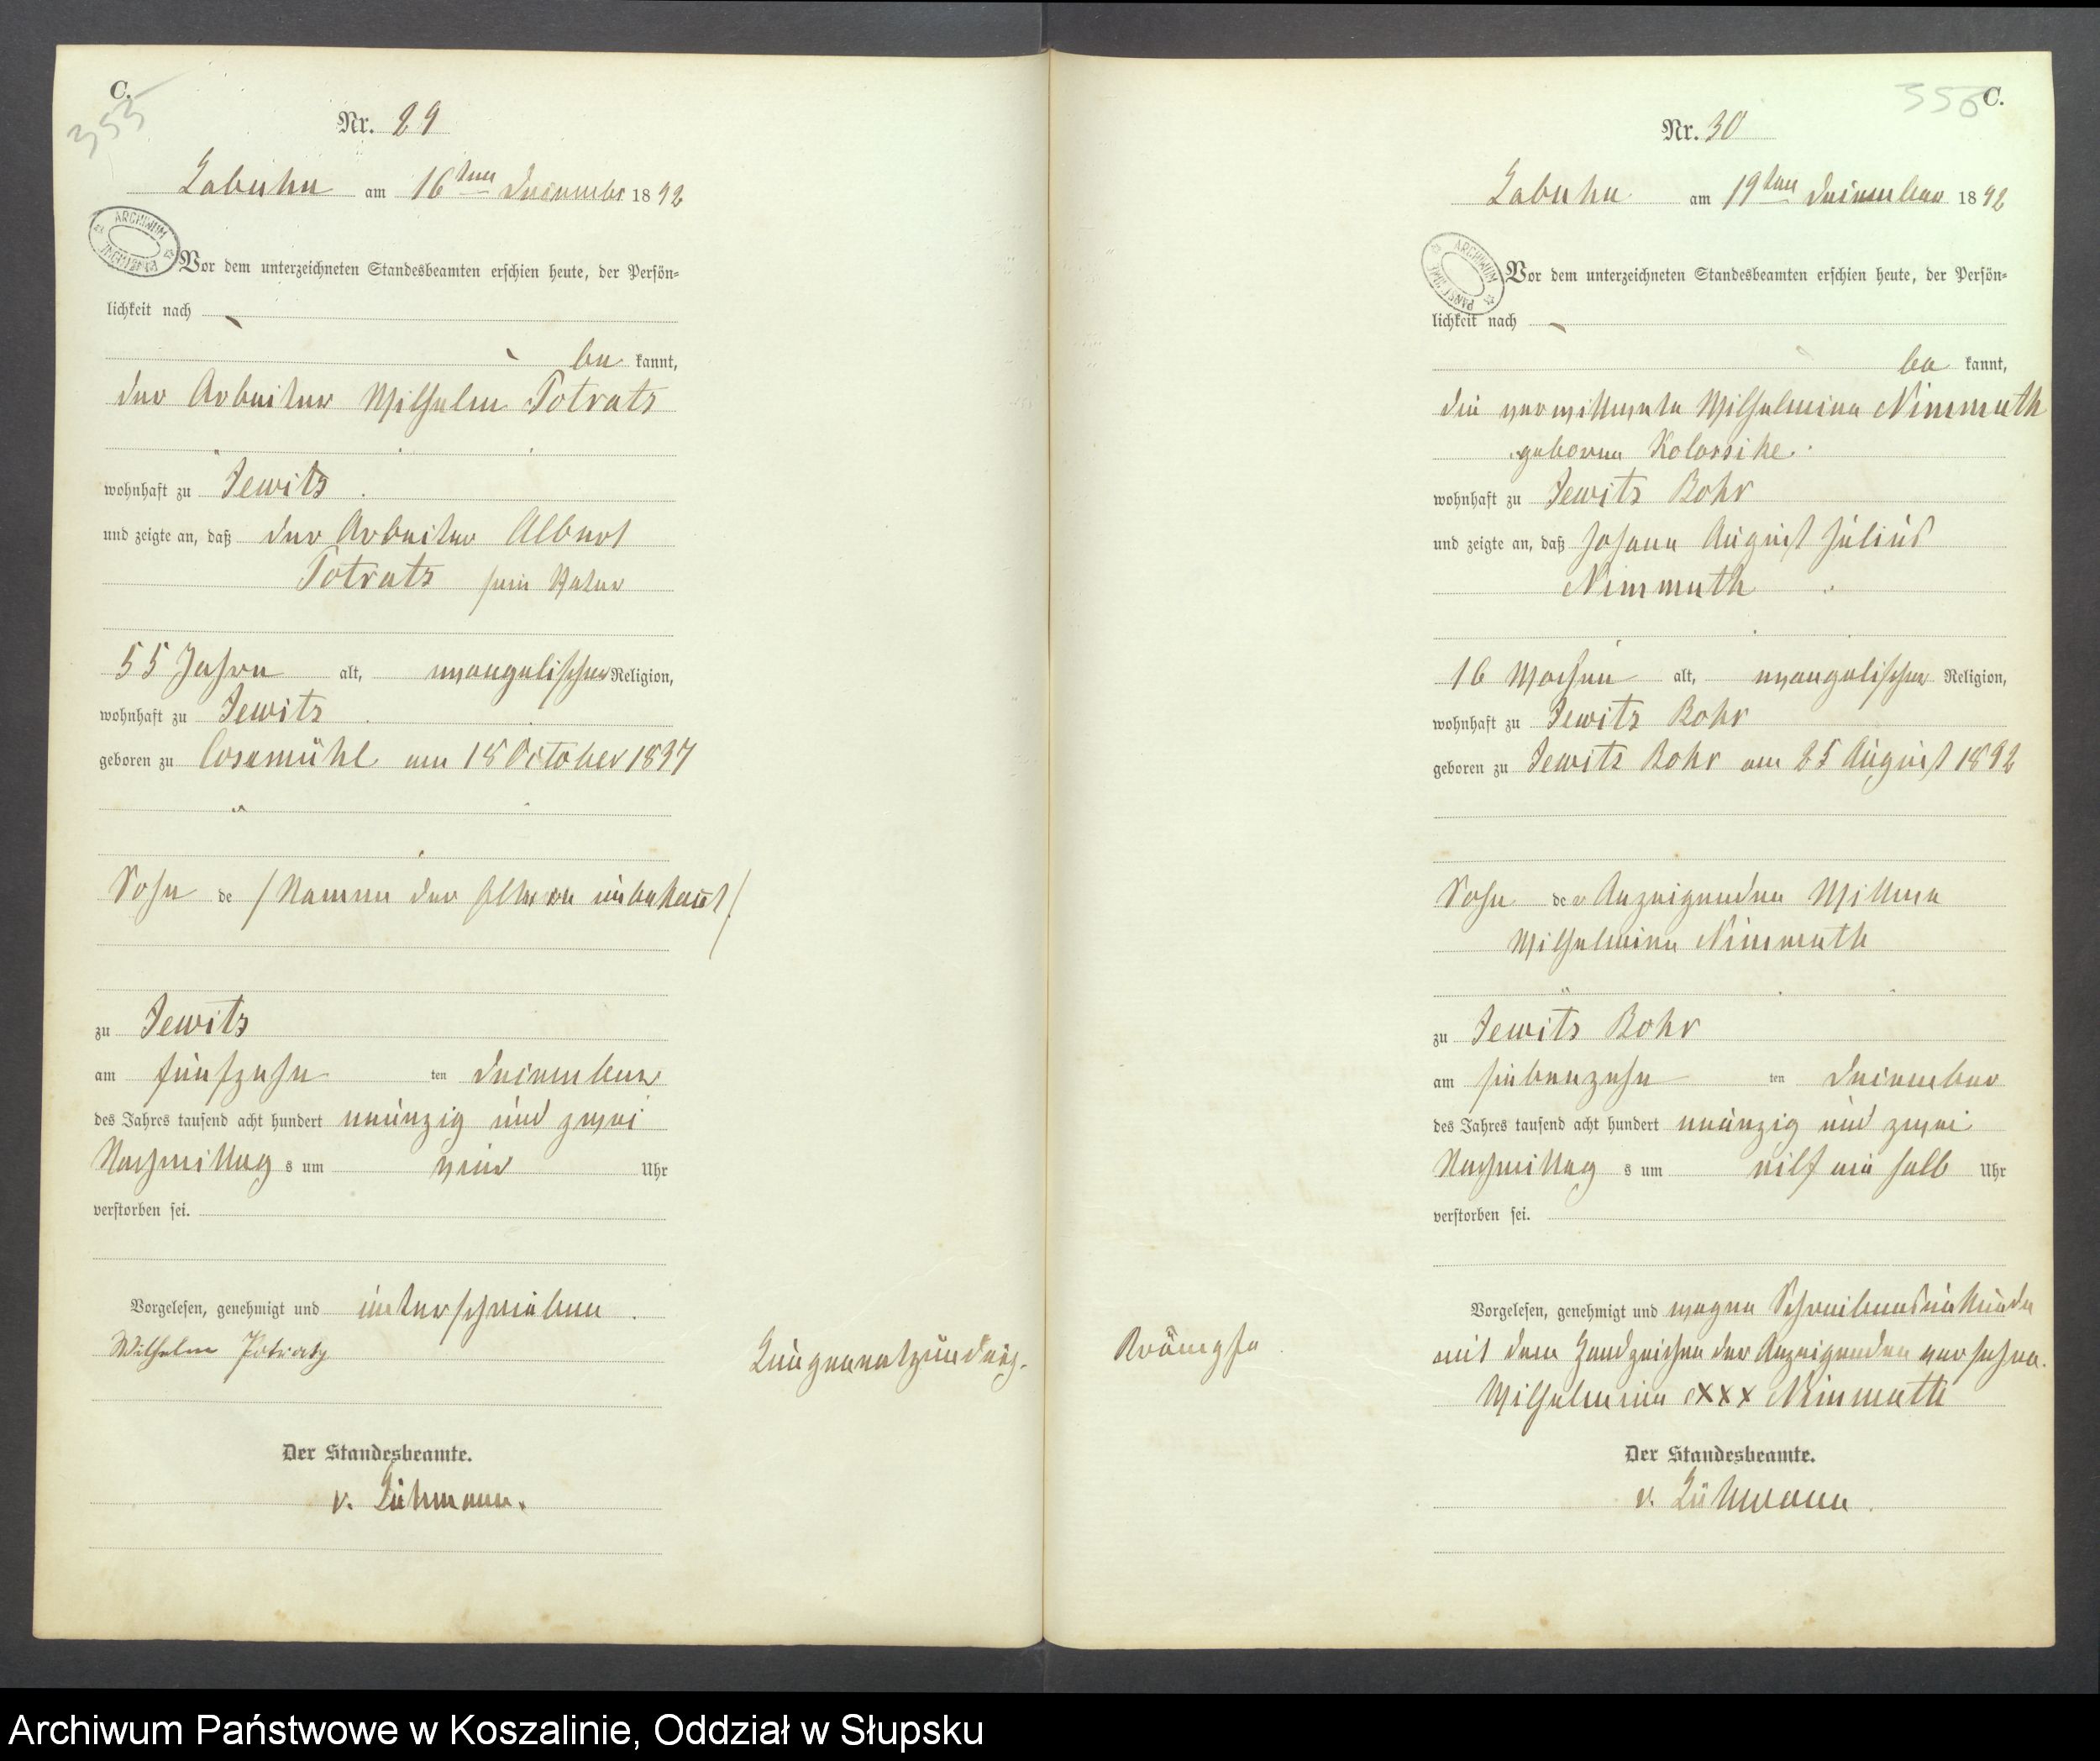 C.
355
Nr. 29
Labuhn am 16ten December 1892
ARCHIWUM
Vor dem unterzeichneten Standesbeamten erschien heute, der Persön=
lichkeit nach
be kannt,
der Arbeiter Wilhelm Potratz
wohnhaft zu Jewitz
und zeigte an, daß der Arbeiter Albert
Potratz sein Vater
55 Jahre alt, evangelischer Religion,
wohnhaft zu Jewitz
geboren zu Cosemühl am 18 October 1837
Sohn de /Namen der Eltern unbekant/
zu Jewitz
am fünfzehn ten December
des Jahres tausend acht hundert neunzig und zwei
Nachmittag s um vier Uhr
verstorben sei.
Vorgelesen, genehmigt und unterschrieben.
Wilhelm Potratz
Lungenentzündung.
Der Standesbeamte.
v. Lühmann.
C.
356
Nr. 30
Labuhn am 19ten December 1892
ARCHIWUM
Vor dem unterzeichneten Standesbeamten erschien heute, der Persön=
lichkeit nach
be kannt,
die verwittwete Wilhelmine Nimmuth
geborne Kolossike
wohnhaft zu Jewitz Rohr
und zeigte an, daß Johann August Julius
Nimmuth
16 Wochen alt, evangelischer Religion,
wohnhaft zu Jewitz Rohr
geboren zu Jewitz Rohr am 25 August 1892
Sohn der Anzeigenden Wittwe
Wilhelmine Nimmuth
zu Jewitz Rohr
am siebenzehn ten December
des Jahres tausend acht hundert neunzig und zwei
Nachmittag s um eilf ein halb Uhr
verstorben sei.
Vorgelesen, genehmigt und wegen Schreibensunkunde
mit dem Handzeichen der Anzeigenden versehen.
Krämpfe
Wilhelmine xxx Nimmuth
Der Standesbeamte.
v. Lühmann.
Archiwum Państwowe w Koszalinie, Oddział w Słupsku